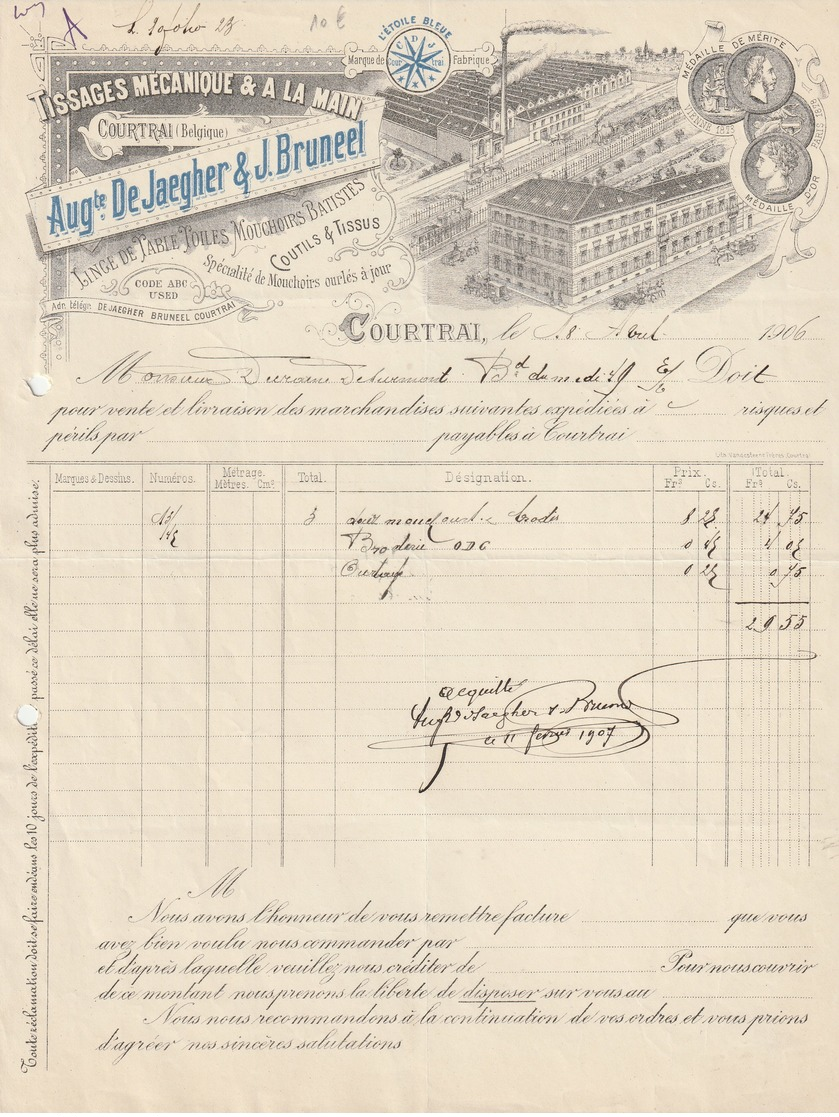 A
10 €
L'ÉTOILE BLEUE
Marque de Fabrique
C D A J
Courtrai
MÉDAILLE DE MÉRITE
MÉDAILLE D'OR
PARIS
TISSAGES MÉCANIQUE & A LA MAIN
COURTRAI (Belgique)
Augte. De Jaegher & J. Bruneel
LINGE DE TABLE TOILES MOUCHOIRS BATISTES
COUTILS & TISSUS
Spécialité de Mouchoirs ourlés à jour
CODE ABC
USED
Adr. télégr. DEJAEGHER BRUNEEL COURTRAI
COURTRAI, le 18 Avril 1906
Monsieur Bd du midi 79 Doit
pour vente et livraison des marchandises suivantes expédiées à risques et
périls par payables à Courtrai
Lith. Vandesteene frères Courtrai
Marques & Dessins. Numéros. Métrage. Total. Désignation. Prix. Total.
Mètres. Cms Frs Cs. Frs Cs.
3 douz mouchoirs 8 25 24 75
Broderie ODG 0 45 4 05
0 25 0 75
29 55
Acquitté
Augte De Jaegher & J. Bruneel
le 11 février 1907
M
Nous avons l'honneur de vous remettre facture que vous
avez bien voulu nous commander par
et d'après laquelle veuillez nous créditer de Pour nous couvrir
de ce montant nous prenons la liberté de disposer sur vous au
Nous nous recommandons à la continuation de vos ordres et vous prions
d'agréer nos sincères salutations
Toute réclamation doit se faire endéans les 10 jours de l'expédition passé ce délai elle ne sera plus admise.